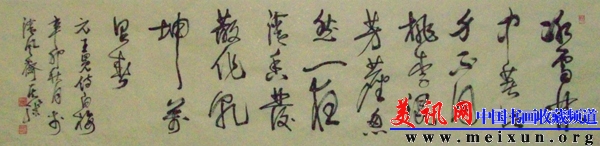 冰雪林
中著此
身不同
桃李混
芳尘忽
然一夜
清香发
散作乾
坤万
里春
元王冕诗白梅
辛卯秋月于
清风斋
美讯网 中国书画收藏频道
www.meixun.org